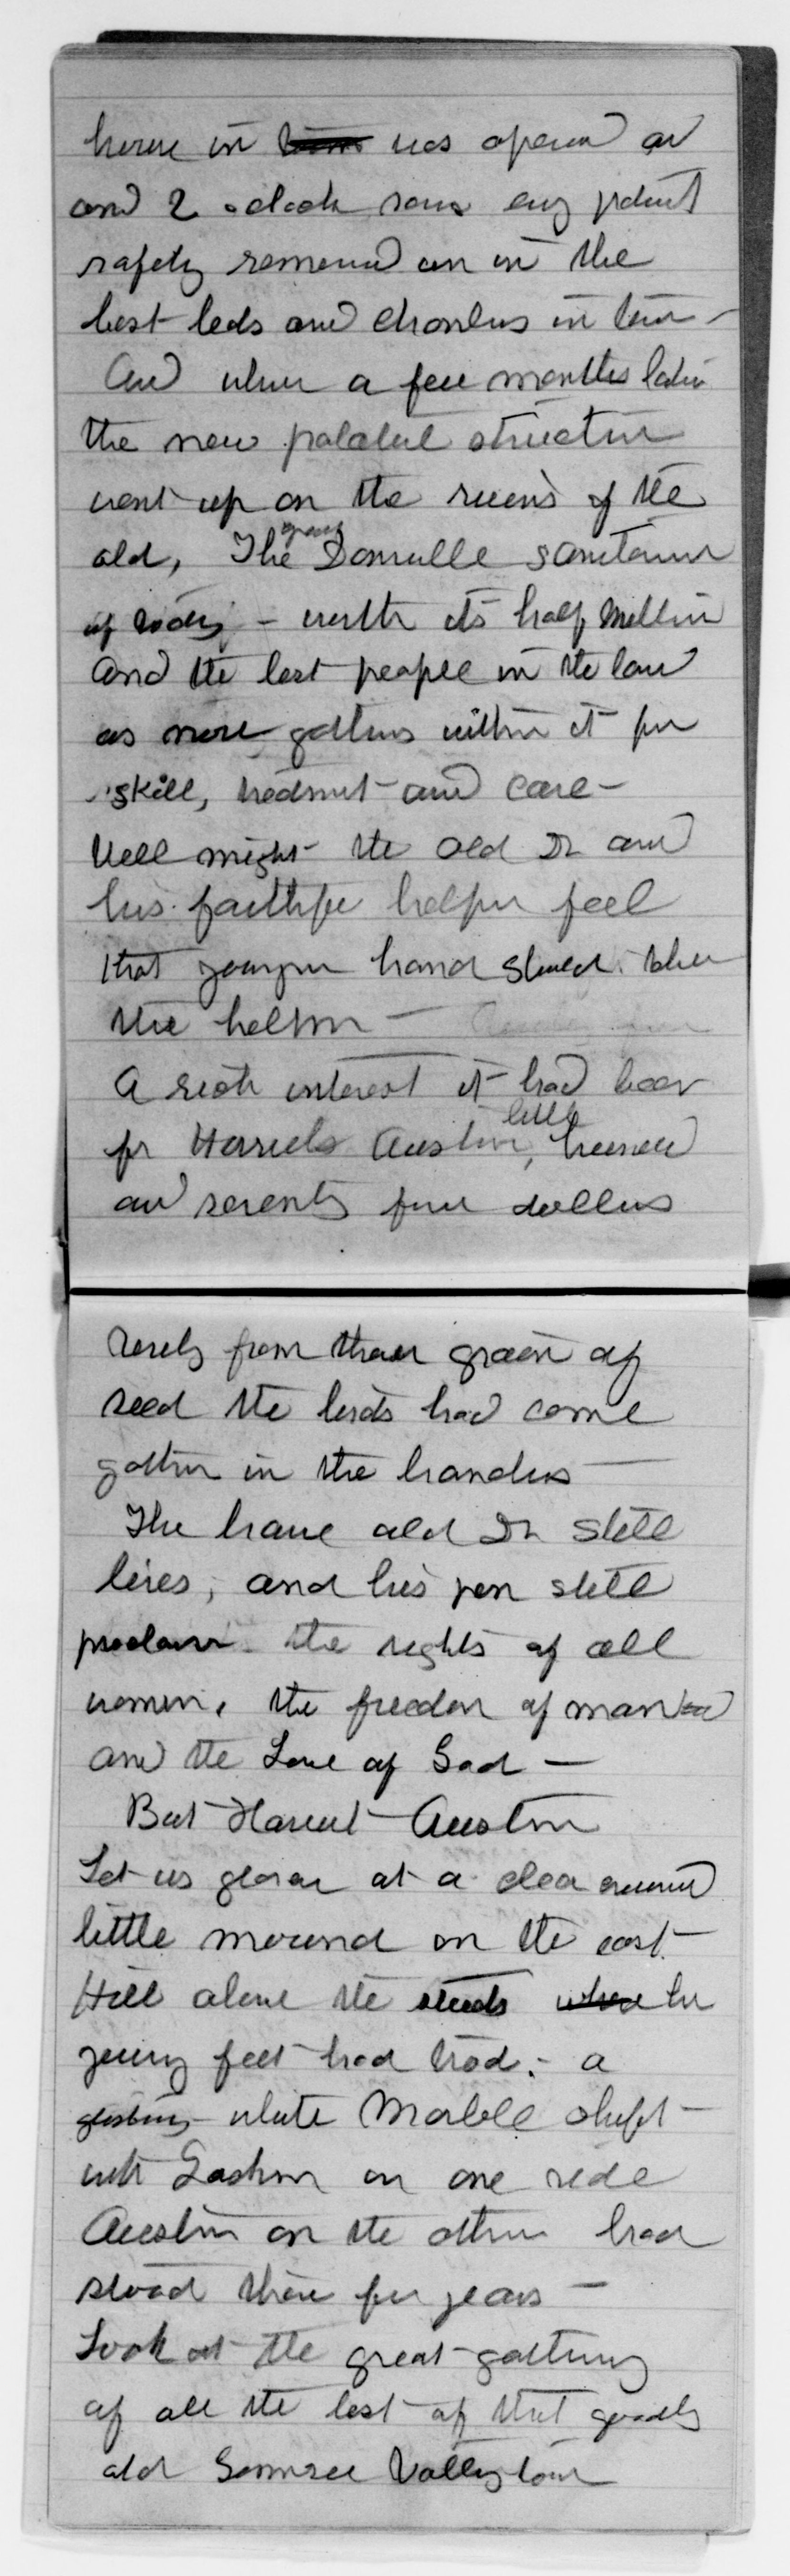 house in ~~town~~ was opened and
and 2 oclock saw evry patient
safely removed on in the
best beds and chambers in town –
And when a few months later
the new palatial structure
went up on the ruins of the
old, The great Dansville Sanitarium
of today – worth its half million
and the best people in the land
as nurse gathers within it for
skill, treatment and care –
Well might the old Dr and
his faithful helper feel
that younger hand should take
the helm –
A rich interest it had been
for Harriets Austin, little hundred
and seventy five dollars
Surely from that grain of
seed the birds had come
gather in the branches –
The brave old Dr still
lives, and his pen still
proclaims the rights of all
women, the freedom of mankind
and the Love of God –
But Harriet Austin
Let us glance at a clea crowned
little mound on the east
Hill above the woods ~~where~~ her
young feet had trod. – a
glistning white Marble shaft –
with Jackson on one side
Austin on the other had
stood there for years –
Look at the great gathering
of all the best of that goodly
old Genesee Valley town